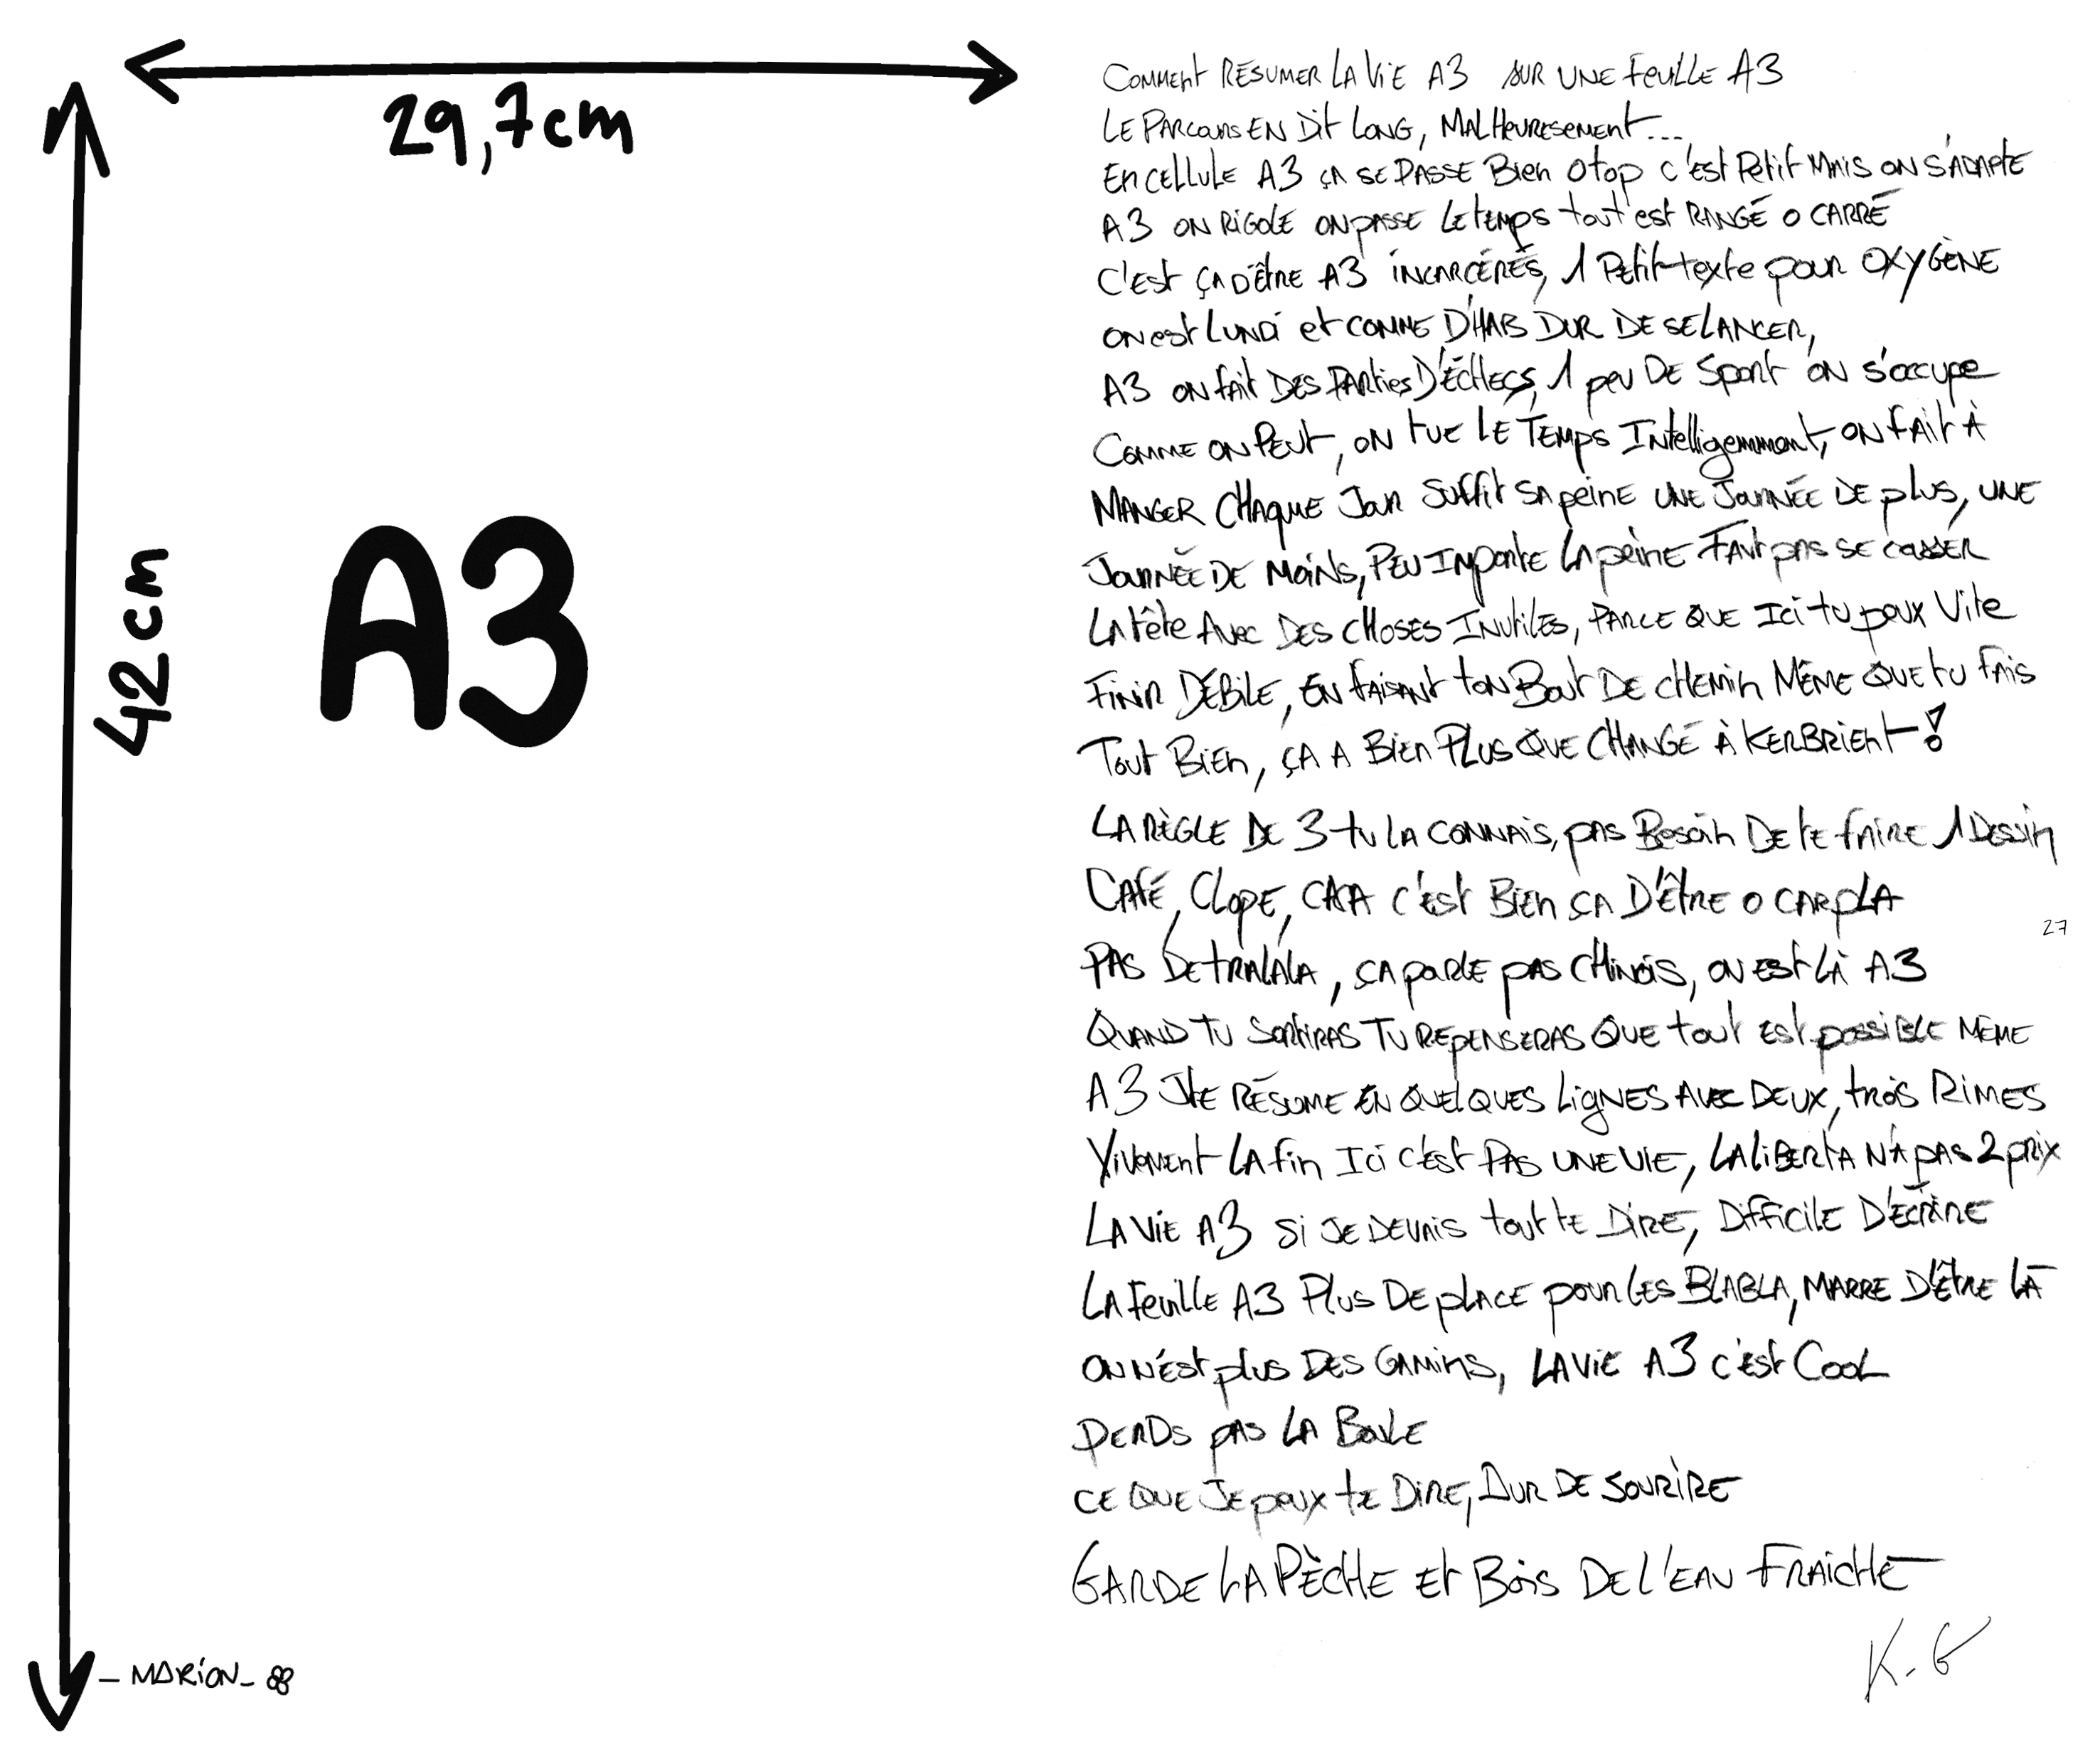 29,7cm
42cm
A3
_ MARION_ 88
COMMENT RÉSUMER LA ViE A3 SUR UNE FEUILLE A3
LE PARCOURS EN DIT LONG, MALHEURESEMENT...
EN CELLULE A3 ÇA SE PASSE BIEN O top C'EST PETIT MAIS ON S'ADAPTE
A3 ON RIGOLE ON PASSE LE TEMPS tout est RANGÉ O CARRÉ
C'EST ÇA D'ÊTRE A3 INCARCÉRÉS, 1 PETIT texte pour OXYGÈNE
ON est LUNDI et COMME D'HAB DUR DE SE LANCER,
A3 ON FAIT DES PARTIES D'ÉCHECS, 1 peu DE Sport ON S'occupe
COMME ON PEUT, ON TUE LE TEMPS INTelligemment, ON FAIT À
MANGER CHAQUE JOUR SUFFIT SA PEINE UNE JOURNÉE DE plus, UNE
JOURNÉE DE MOINS, PEU IMPORTE LA PEINE FAUT pas SE CASSER
LA TÊTE AVEC DES CHOSES INUTILES, PARCE QUE ICI TU peux VITE
FINIR DÉBILE, EN FAISANT TON BOUT DE CHEMIN MÊME QUE TU FAIS
TOUT BIEN, ÇA A BIEN PLUS QUE CHANGÉ À KERBRIENT !
LA RÈGLE DE 3 TU LA CONNAIS, pas BESOIN DE TE FAIRE 1 DESSIN
CAFÉ, CLOPE, CACA C'EST BIEN ÇA D'ÊTRE O CARPLA
PAS DE TRALALA, ÇA PARLE PAS CHINOIS, ON EST LÀ A3
QUAND TU SORTIRAS TU REPENSERAS QUE TOUT EST possible MÊME
A3 J'TE RÉSUME EN QUELQUES LIGNES AVEC DEUX, TROIS RIMES
VIVEMENT LA FIN ICI C'EST PAS UNE VIE, LA LIBERTA N'A PAS 2 prix
LA VIE A3 SI JE DEVAIS TOUT TE DIRE, DIFFICILE D'ÉCRIRE
LA FEUILLE A3 PLUS DE PLACE POUR LES BLABLA, MARRE D'ÊTRE LÀ
ON N'EST PLUS DES GAMINS, LA VIE A3 C'EST COOL
PERDS PAS LA BOULE
CE QUE JE peux TE DIRE, DUR DE SOURIRE
GARDE LA PÊCHE ET BOIS DE L'EAU FRAICHE
K. G
27